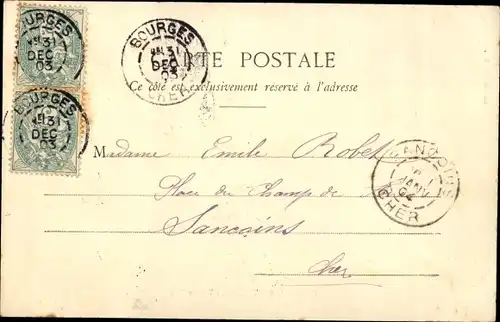 BOURGES
31
DEC
03
BOURGES
31
DEC
03
BOURGES
31
DEC
03
CHER
CARTE POSTALE
Ce côté est exclusivement réservé à l'adresse
Madame Emile Robet
Place du Champ de
Sancoins
Cher
SANCOINS
1
JANV
04
CHER